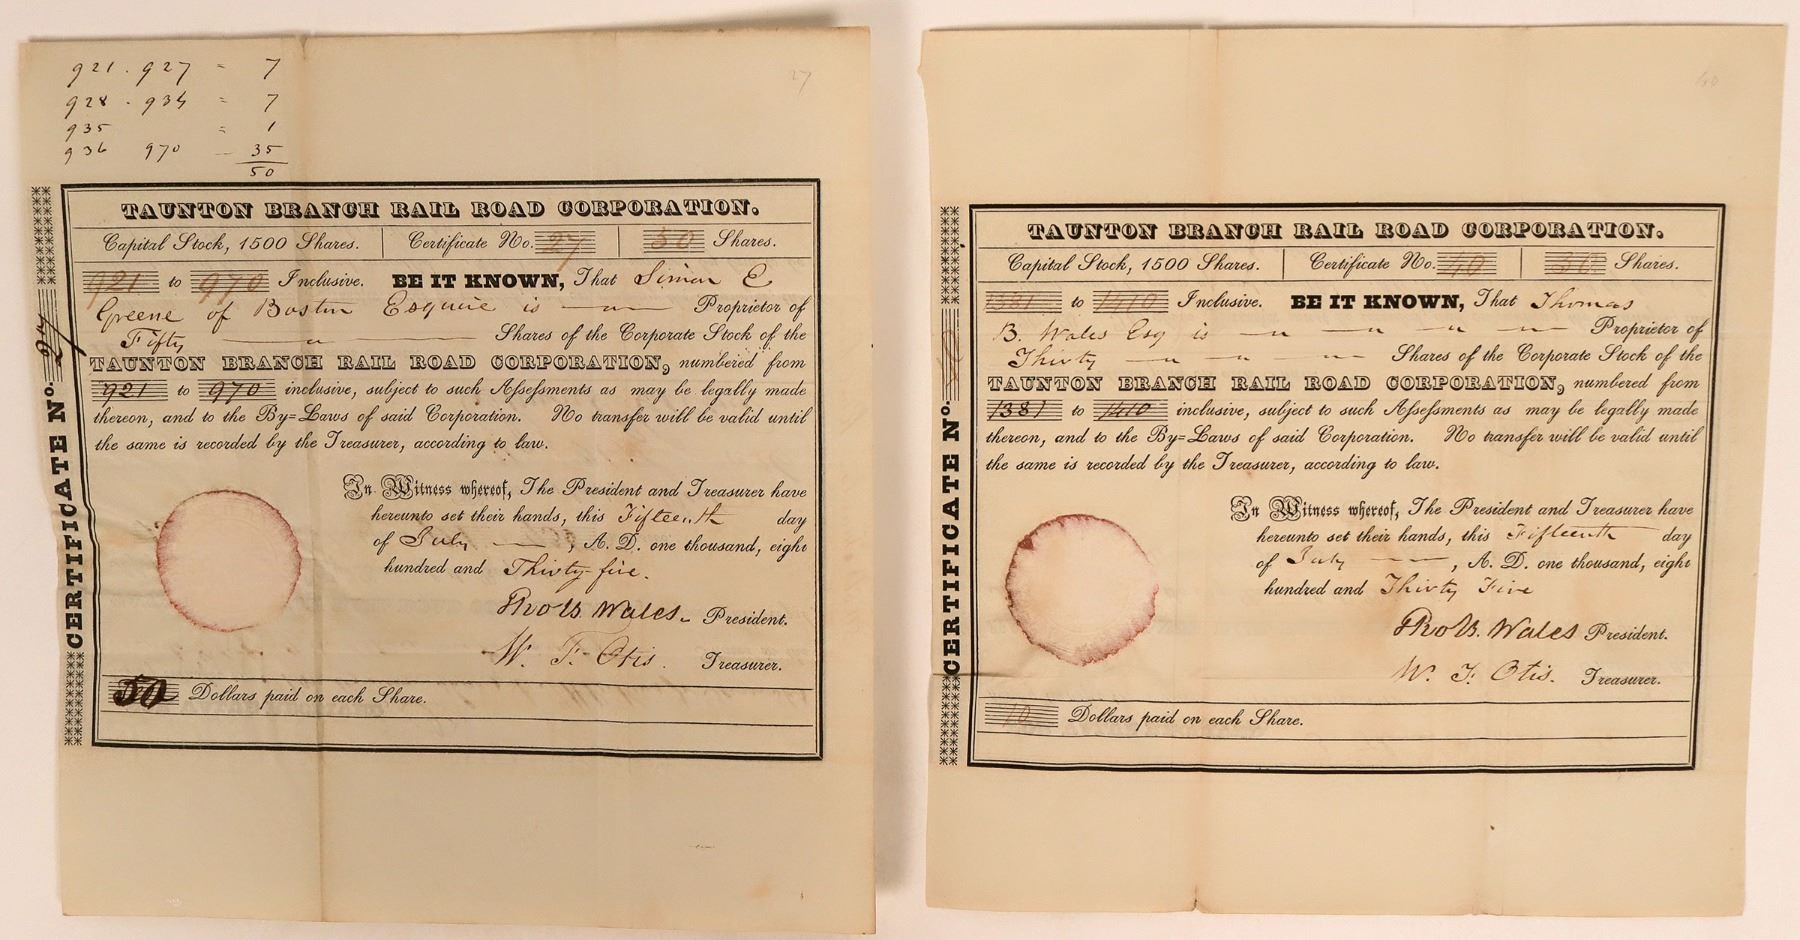 921 . 927 = 7
928 . 934 = 7
935 = 1
936 970 — 35
50
27
TAUNTON BRANCH RAIL ROAD CORPORATION.
Capital Stock, 1500 Shares. Certificate No. 27 50 Shares.
921 to 970 Inclusive. BE IT KNOWN, That Simon E
Greene of Boston Esquire is Proprietor of
Fifty Shares of the Corporate Stock of the
TAUNTON BRANCH RAIL ROAD CORPORATION, numbered from
921 to 970 inclusive, subject to such Assessments as may be legally made
thereon, and to the By=Laws of said Corporation. No transfer will be valid until
the same is recorded by the Treasurer, according to law.
In Witness whereof, The President and Treasurer have
hereunto set their hands, this Fifteenth day
of July , A. D. one thousand, eight
hundred and Thirty-five.
Tho B. Wales. President.
W. F. Otis. Treasurer.
50 Dollars paid on each Share.
CERTIFICATE No. 27
40
TAUNTON BRANCH RAIL ROAD CORPORATION.
Capital Stock, 1500 Shares. Certificate No. 40 30 Shares.
1381 to 1410 Inclusive. BE IT KNOWN, That Thomas
B. Wales Esq is Proprietor of
Thirty Shares of the Corporate Stock of the
TAUNTON BRANCH RAIL ROAD CORPORATION, numbered from
1381 to 1410 inclusive, subject to such Assessments as may be legally made
thereon, and to the By=Laws of said Corporation. No transfer will be valid until
the same is recorded by the Treasurer, according to law.
In Witness whereof, The President and Treasurer have
hereunto set their hands, this Fifteenth day
of July , A. D. one thousand, eight
hundred and Thirty Five
Tho B. Wales President.
W. F. Otis. Treasurer.
10 Dollars paid on each Share.
CERTIFICATE No. 40